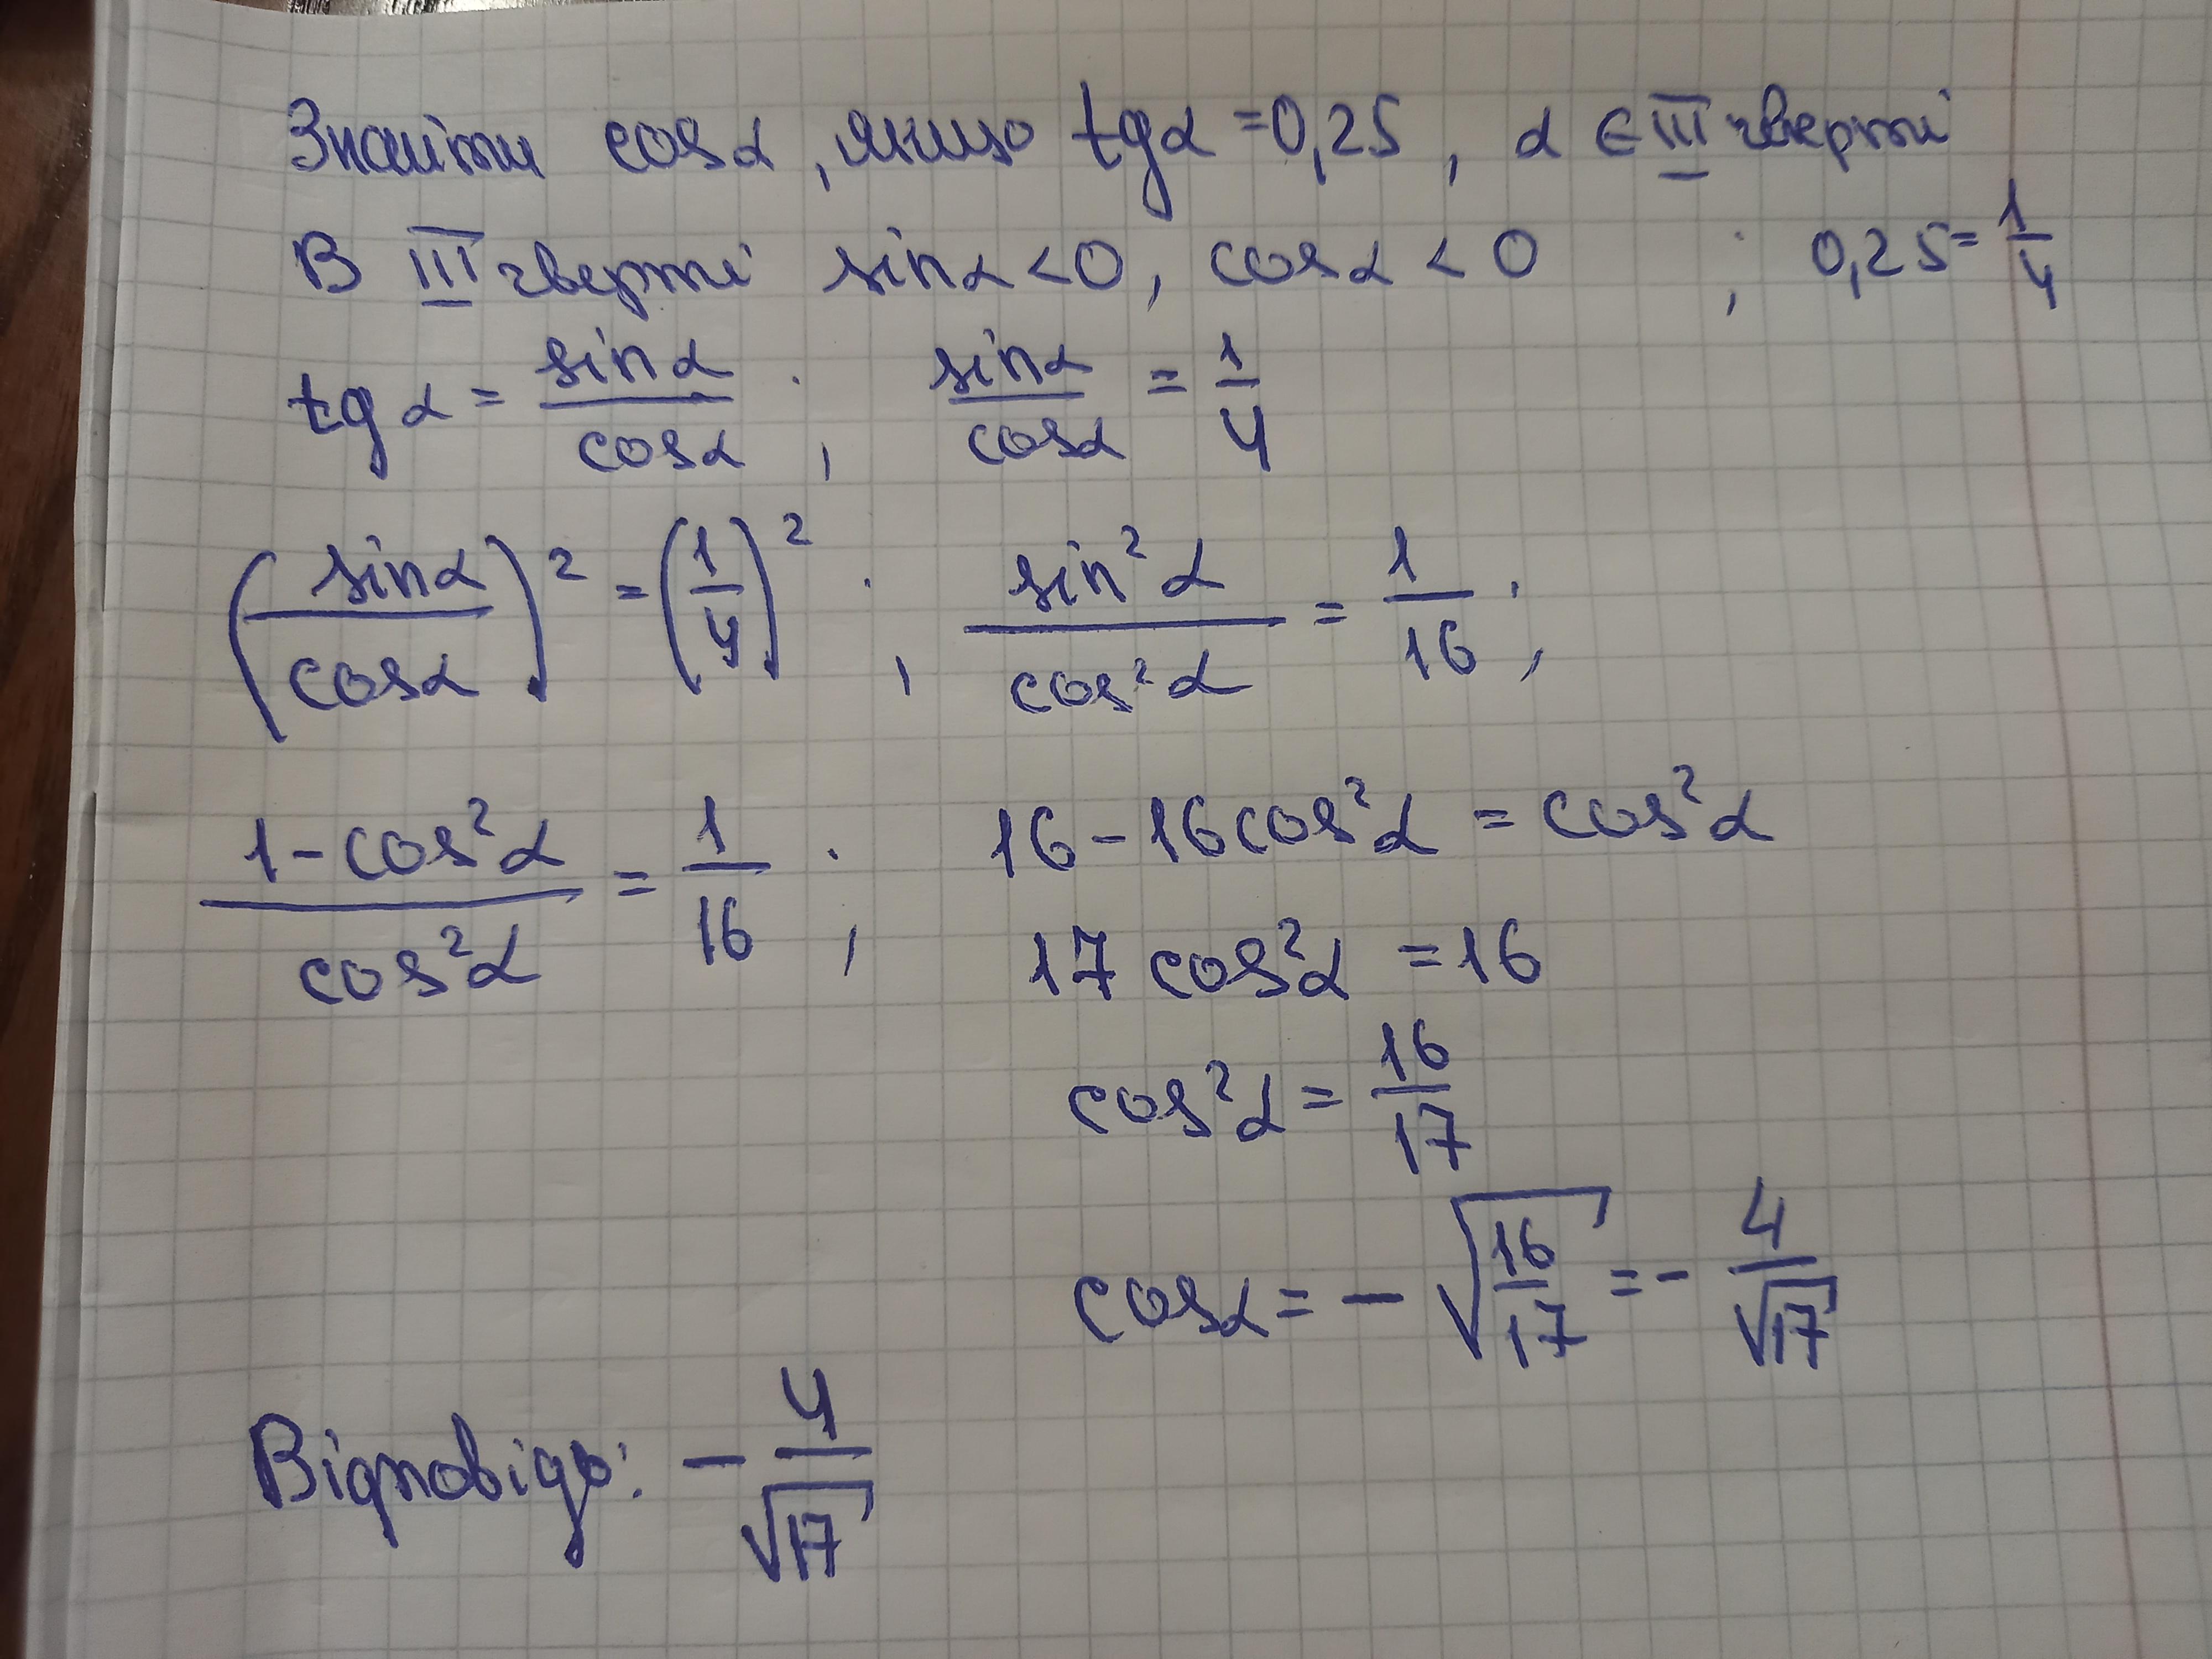 Знайти cosα, якщо tgα = 0,25, α ∈ III чверті
В III чверті sinα < 0, cosα < 0 ; 0,25 = 1/4
tgα = sinα/cosα ; sinα/cosα = 1/4
(sinα/cosα)² = (1/4)² ; sin²α/cos²α = 1/16 ;
(1-cos²α)/cos²α = 1/16 ; 16 - 16cos²α = cos²α
17 cos²α = 16
cos²α = 16/17
cosα = - √(16/17) = - 4/√17
Відповідь: - 4/√17